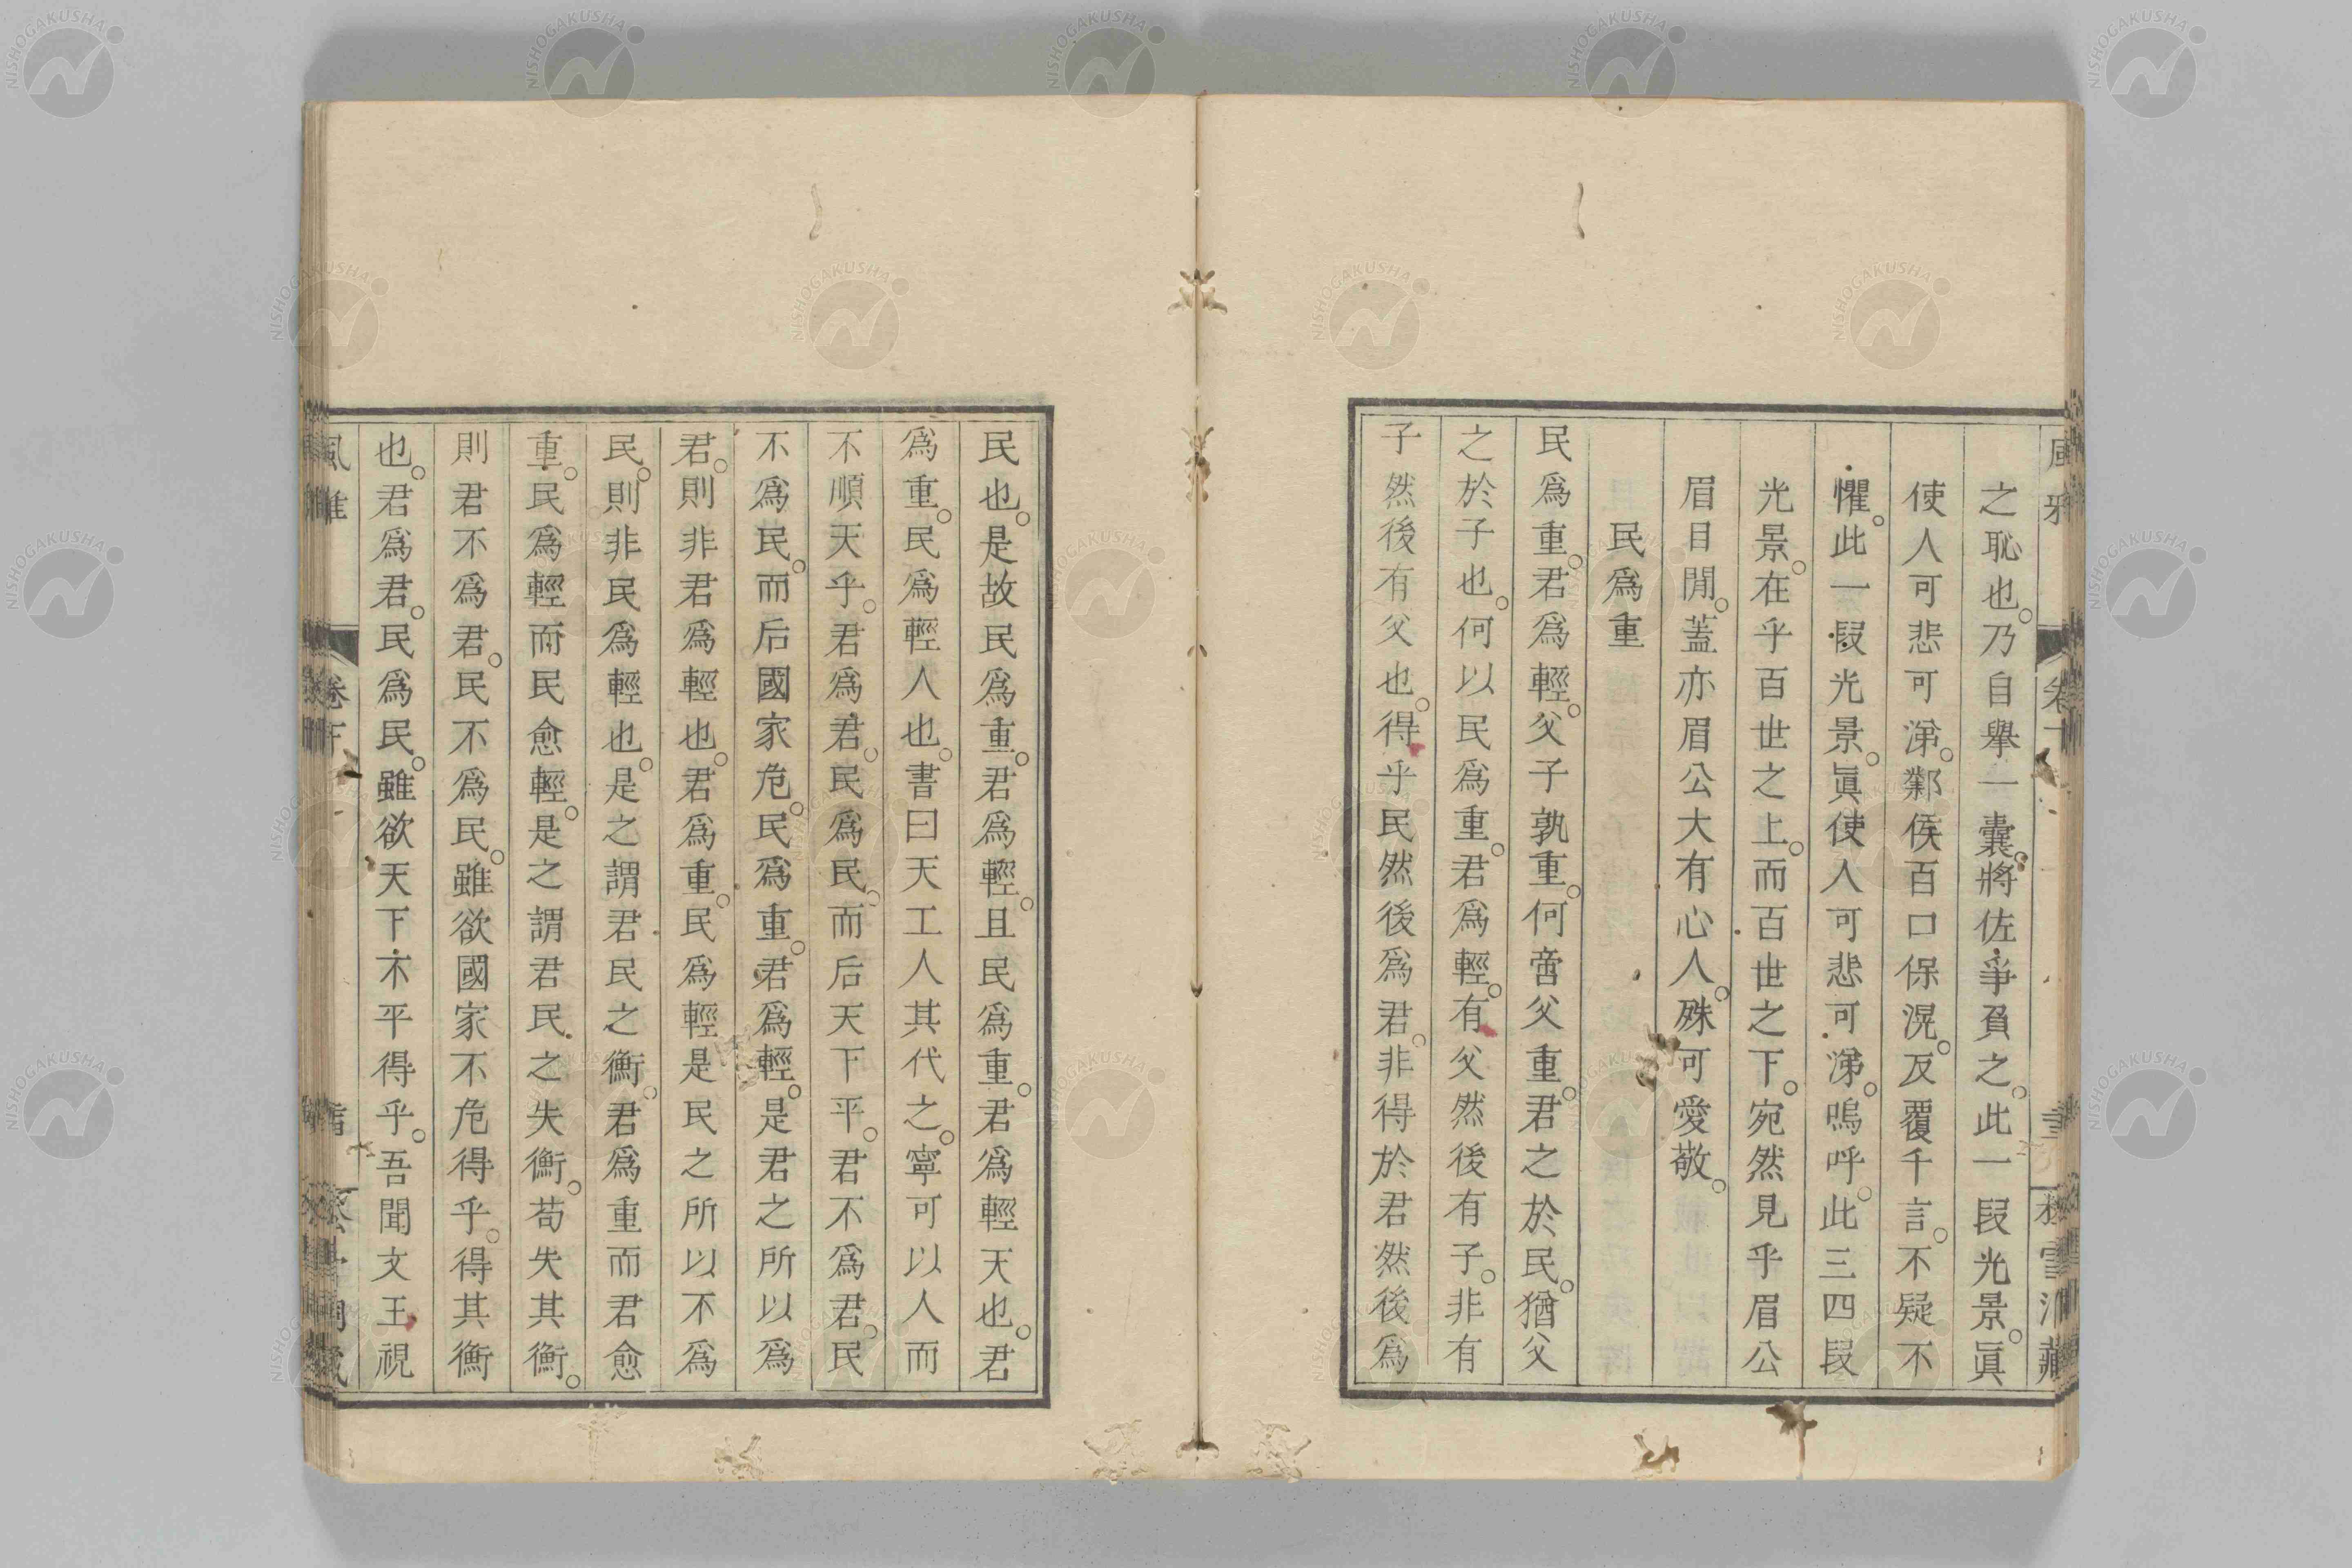 之恥也。乃自擧一囊。將佐爭負之。此一段光景。眞
使人可悲可涕。鄴侯百口保滉。反覆千言。不疑不
懼。此一段光景。眞使人可悲可涕。嗚呼。此三四段
光景。在乎百世之上。而百世之下。宛然見乎眉公
眉目閒。蓋亦眉公大有心人。殊可愛敬。
民爲重
民爲重。君爲輕。父子孰重。何啻父重。君之於民。猶父
之於子也。何以民爲重。君爲輕。有父然後有子。非有
子然後有父也。得乎民然後爲君。非得於君然後爲
民也。是故民爲重。君爲輕。且民爲重。君爲輕天也。君
爲重。民爲輕人也。書曰天工人其代之。寧可以人而
不順天乎。君爲君。民爲民。而后天下平。君不爲君。民
不爲民。而后國家危。民爲重。君爲輕。是君之所以爲
君。則非君爲輕也。君爲重。民爲輕是民之所以不爲
民。則非民爲輕也。是之謂君民之衡。君爲重而君愈
重。民爲輕而民愈輕。是之謂君民之失衡。苟失其衡。
則君不爲君。民不爲民。雖欲國家不危得乎。得其衡
也。君爲君。民爲民。雖欲天下不平得乎。吾聞文王視
NISHOGAKUSHA